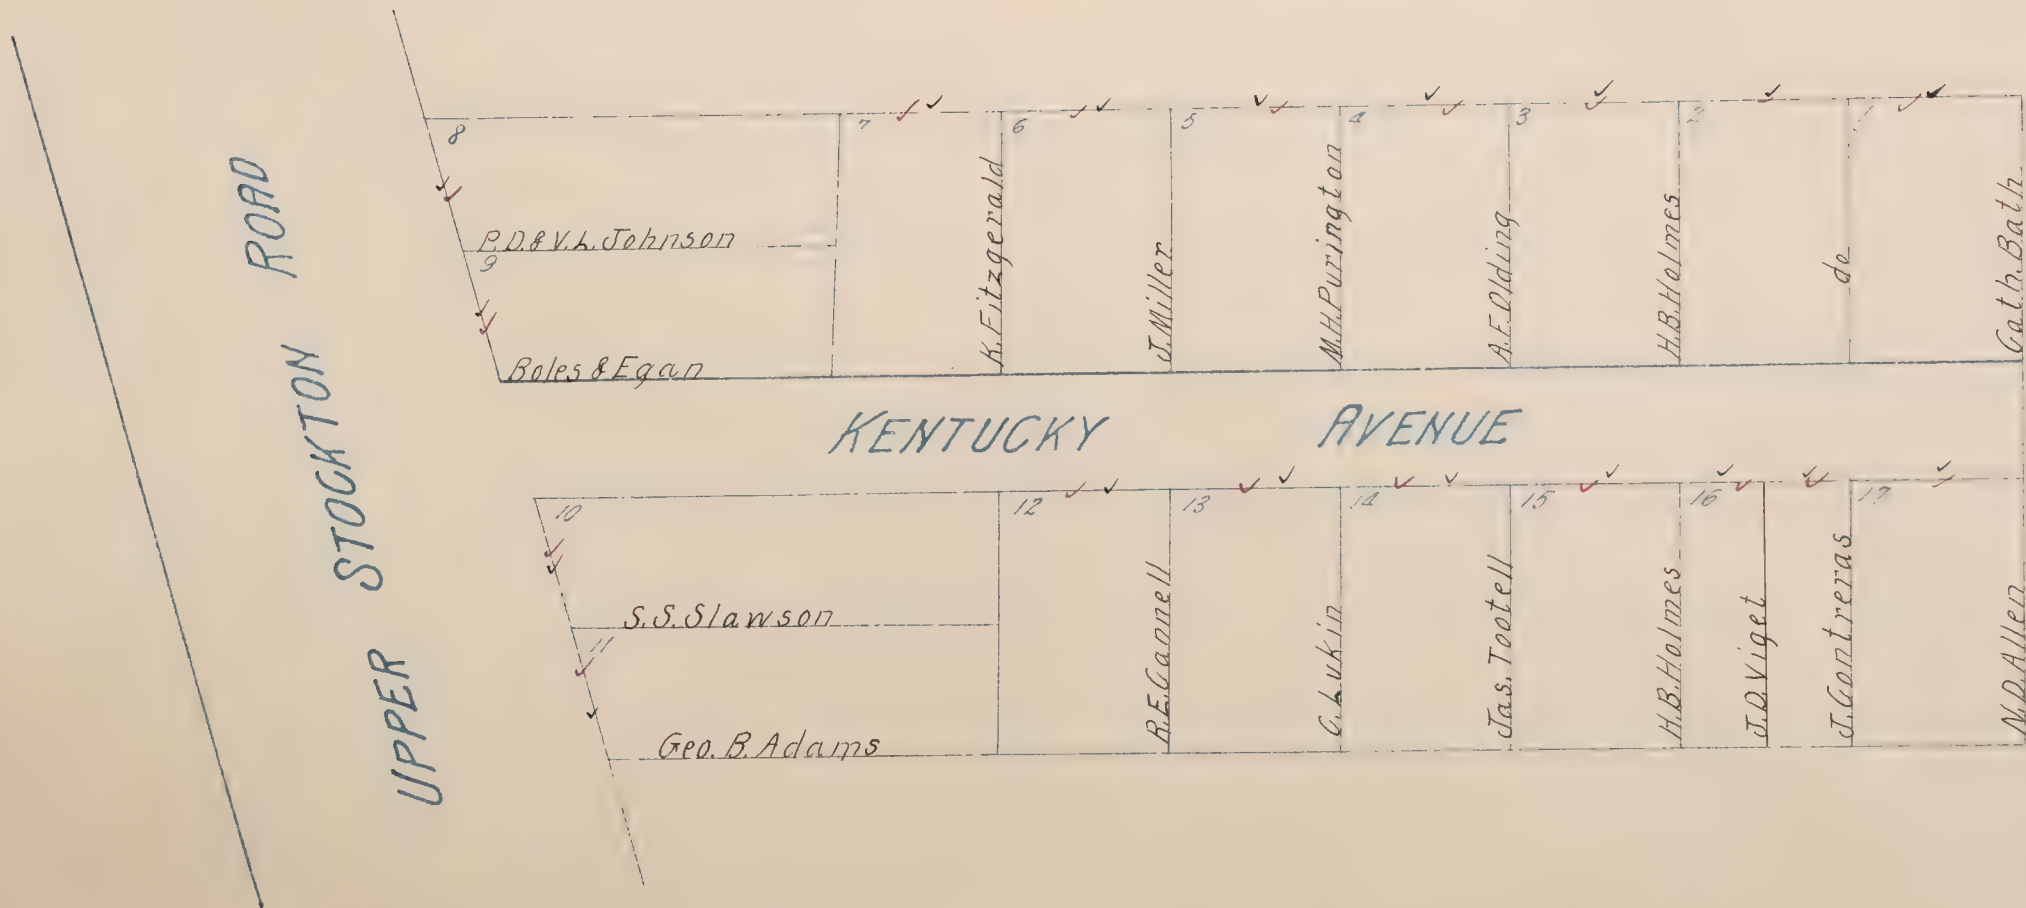 UPPER STOCKTON ROAD
8
7
6
5
4
3
2
1
P.D. & V.L. Johnson
9
Boles & Egan
K. Fitzgerald
J. Miller
M.H. Purington
A.F. Olding
H.B. Holmes
do
Cath. Bath
KENTUCKY AVENUE
10
12
13
14
15
16
17
S.S. Slawson
11
Geo. B. Adams
R.E. Cannell
C. Lukin
Jas. Tootell
H.B. Holmes
J.D. Viget
J. Contreras
N.D. Allen